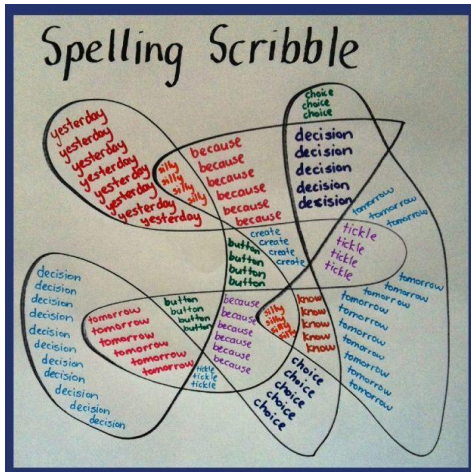 Spelling Scribble
yesterday
yesterday
yesterday
yesterday
yesterday
yesterday
yesterday
yesterday
silly
silly
silly
silly
because
because
because
because
because
because
choice
choice
choice
decision
decision
decision
decision
decision
tomorrow
tomorrow
tomorrow
create
create
create
create
tickle
tickle
tickle
tickle
button
button
button
button
decision
decision
decision
decision
decision
decision
decision
decision
decision
decision
decision
tomorrow
tomorrow
tomorrow
tomorrow
tomorrow
button
button
button
button
tickle
tickle
tickle
because
because
because
because
because
because
silly
silly
silly
silly
know
know
know
know
know
choice
choice
choice
choice
choice
tomorrow
tomorrow
tomorrow
tomorrow
tomorrow
tomorrow
tomorrow
tomorrow
tomorrow
tomorrow
tomorrow